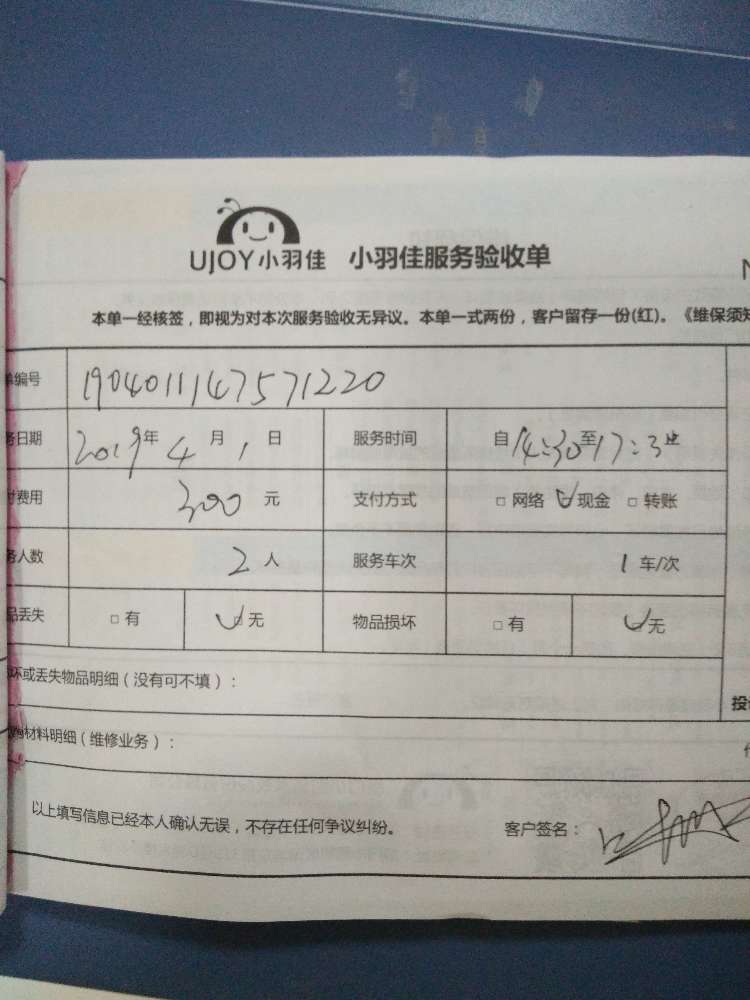 UJOY小羽佳 小羽佳服务验收单
本单一经核签，即视为对本次服务验收无异议。本单一式两份，客户留存一份(红)。《维保须知
单编号 1904011147571220
务日期 2019年4月1日 服务时间 自14:30至17:3
付费用 300元 支付方式 □网络 ☑现金 □转账
务人数 2人 服务车次 1车/次
品丢失 □有 ☑无 物品损坏 □有 ☑无
坏或丢失物品明细（没有可不填）：
材料明细（维修业务）：
以上填写信息已经本人确认无误，不存在任何争议纠纷。 客户签名：